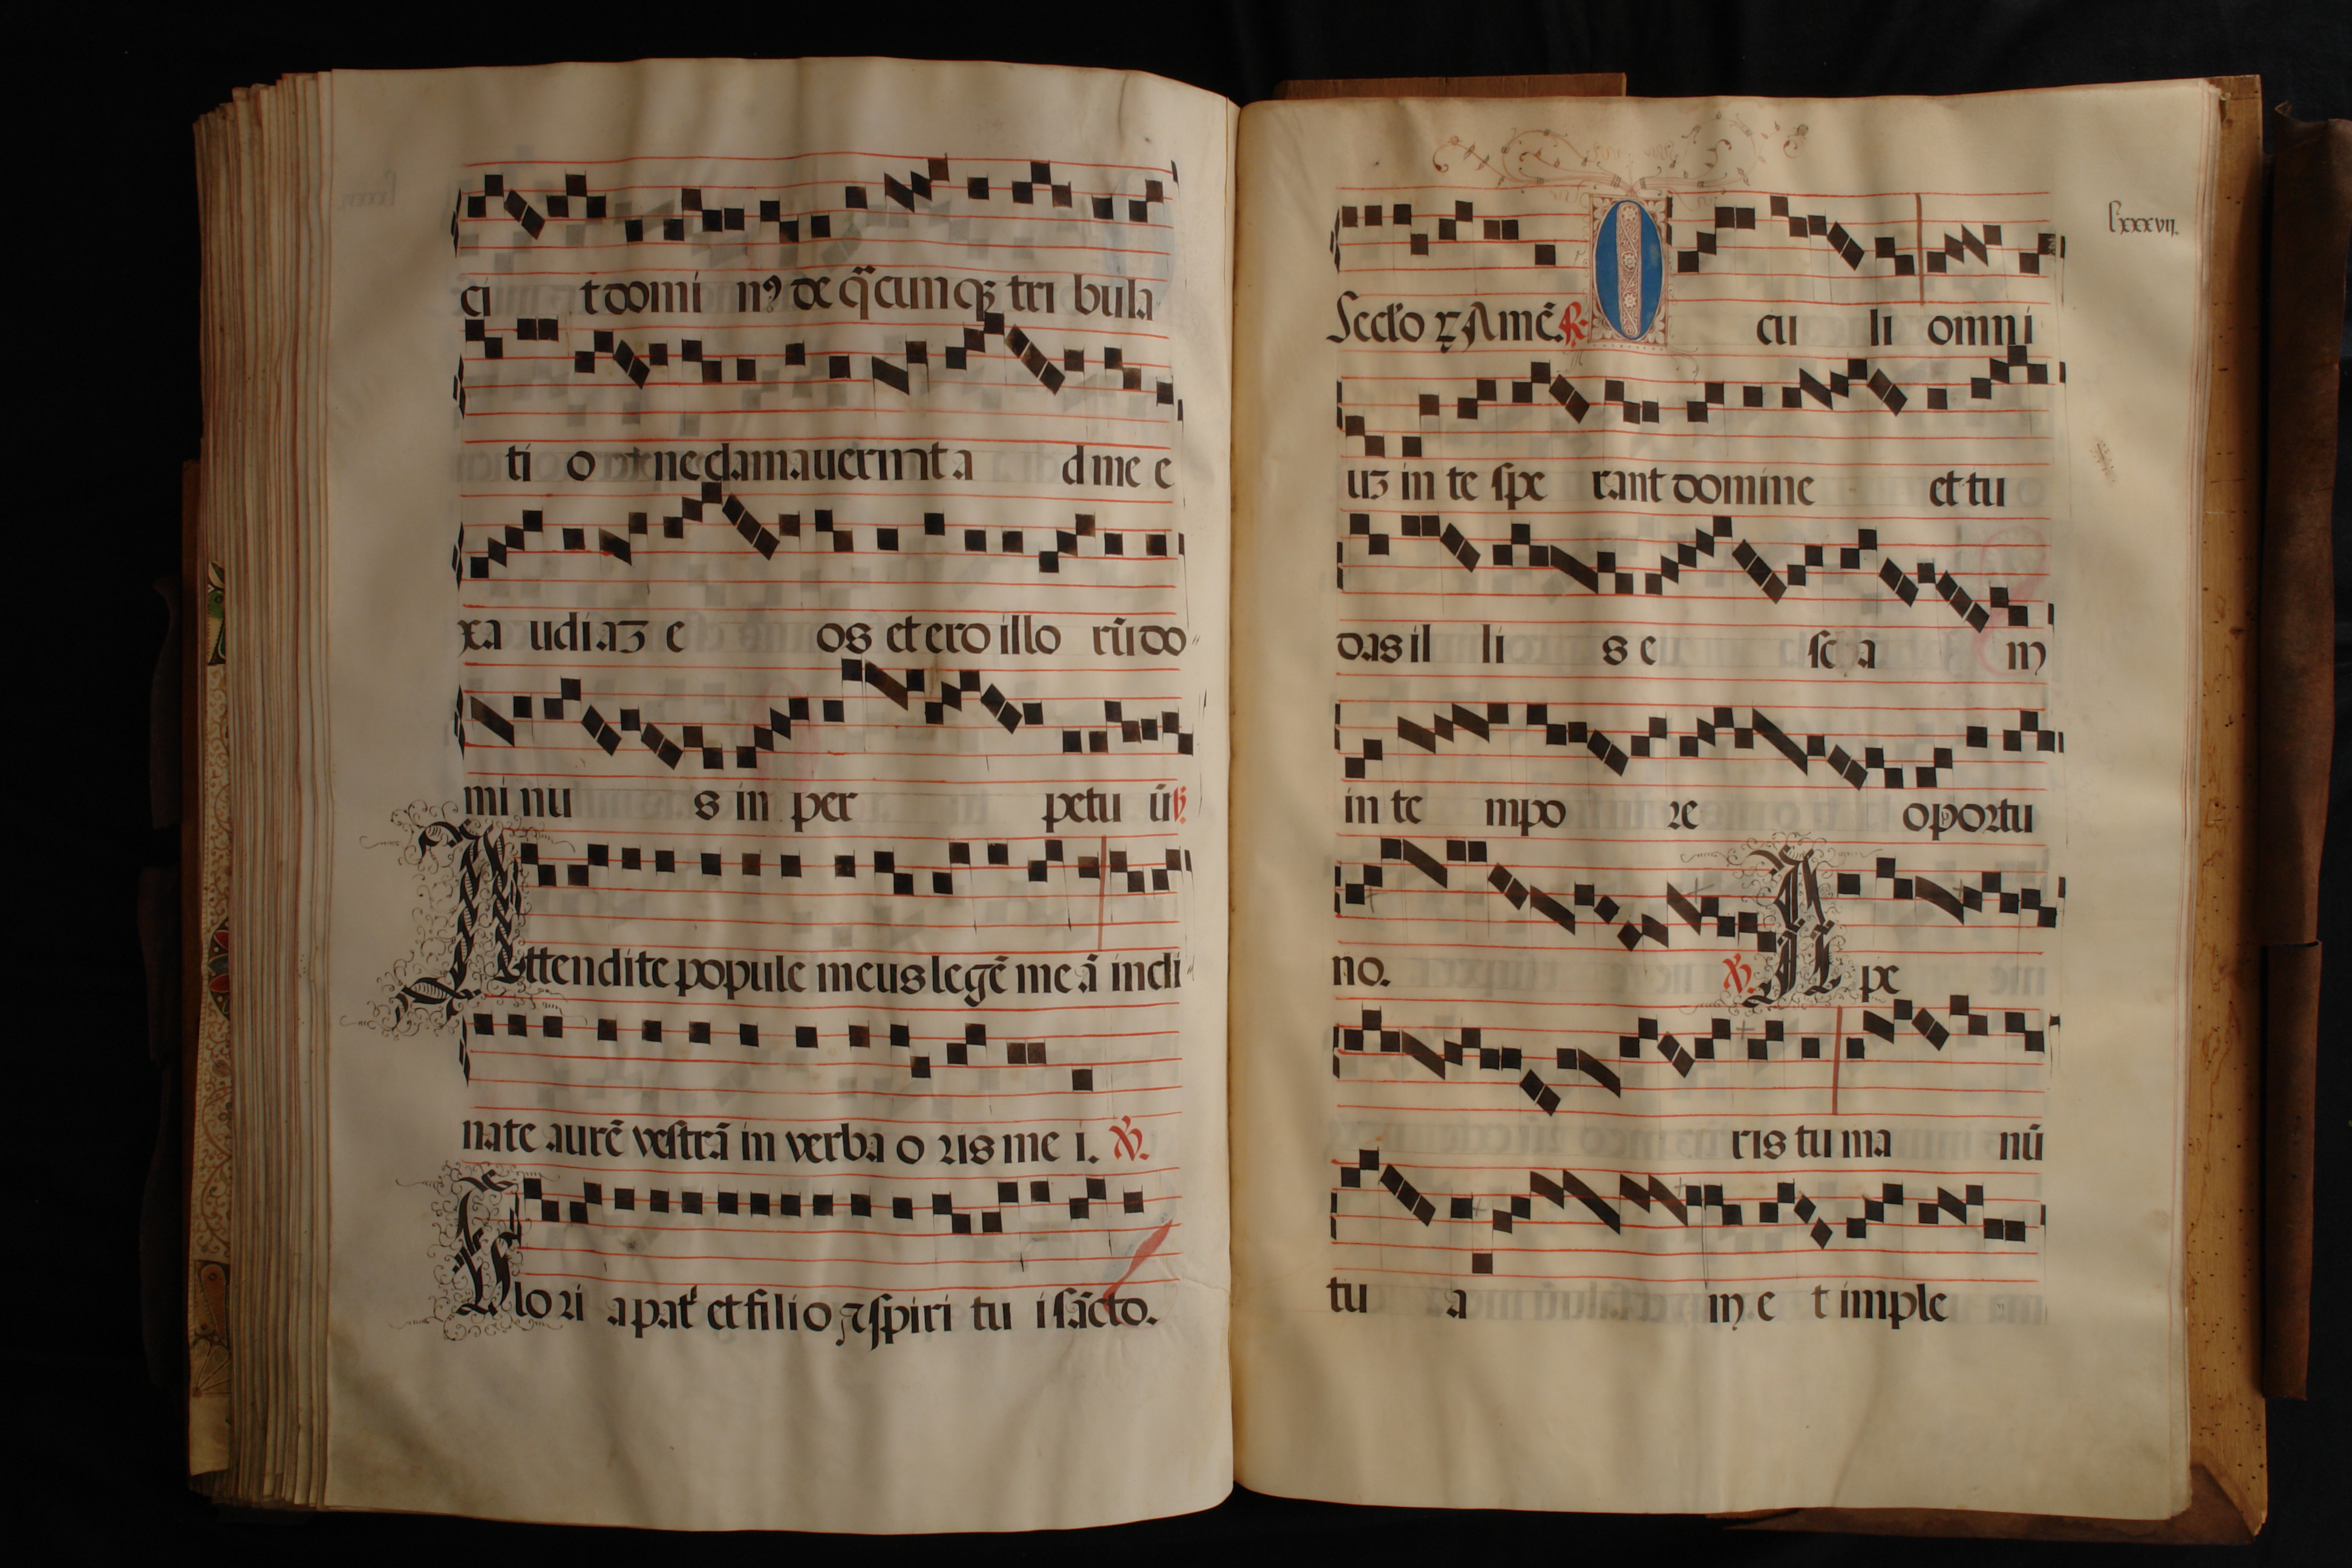 ci t domi nꝰ de q̃cunqꝫ tri bula
ti o ne clamauerint a d me e
xa udiaꝫ e os et ero illo rũ do
mi nu s in per petu ũ ℣.
Attendite popule meus legẽ me ã incli
nate aurẽ vestrã in verba o ris me i. ℣.
Glori a pat̃ et filio ⁊ spiri tu i sãcto.
lxxxvij.
Seclo ꝝ Amẽ. ℟. O cu li omni
uꝫ in te spe rant domine et tu
das il li s e sca m
in te mpo re oportu
no. ℣. A pe
ris tu ma nũ
tu a m e t imple